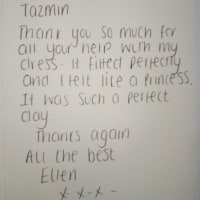 Tazmin
Thank you so much for
all your help with my
dress. It fitted perfectly
and I felt like a princess.
It was such a perfect
day.
Thanks again
All the best
Ellen
x x - x -